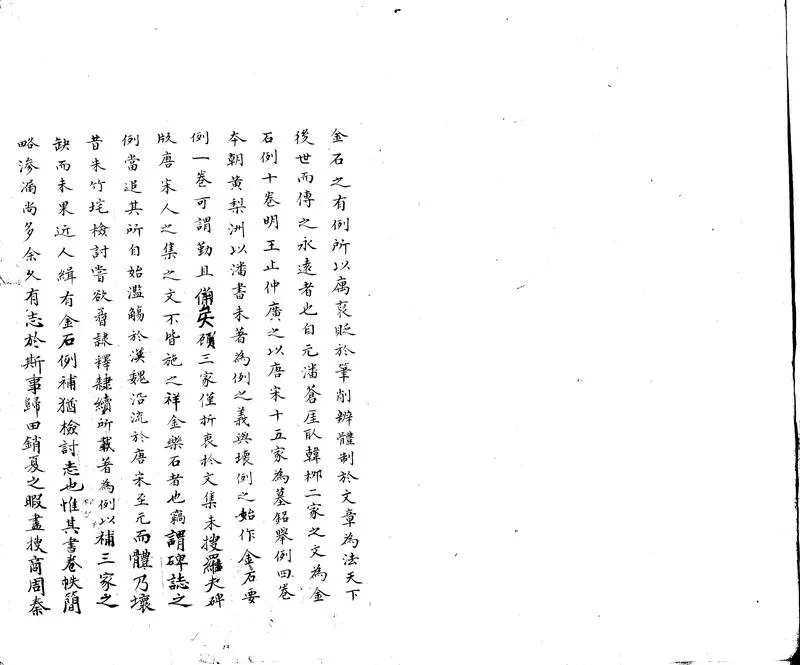 金石之有例所以寓裒貶於筆削辨體制於文章為法天下
後世而傳之永遠者也自元潘蒼厓取韓栁二家之文為金
石例十卷明王止仲廣之以唐宋十五家為墓銘舉例四卷
本朝黄梨洲以潘書未著為例之義與壞例之始作金石要
例一卷可謂勤且備矣顧三家僅折衷於文集未搜羅夫碑
版唐宋人之集之文不皆施之祥金樂石者也竊謂碑誌之
例當追其所自始濫觴於漢魏沿流於唐宋至元而體乃壞
昔朱竹垞檢討嘗欲尋隷釋隷續所載著為例以補三家之
缺而未果近人緝有金石例補猶檢討志也惟其書卷帙簡
略滲漏尚多余久有志於斯事歸田銷夏之暇盡搜商周秦